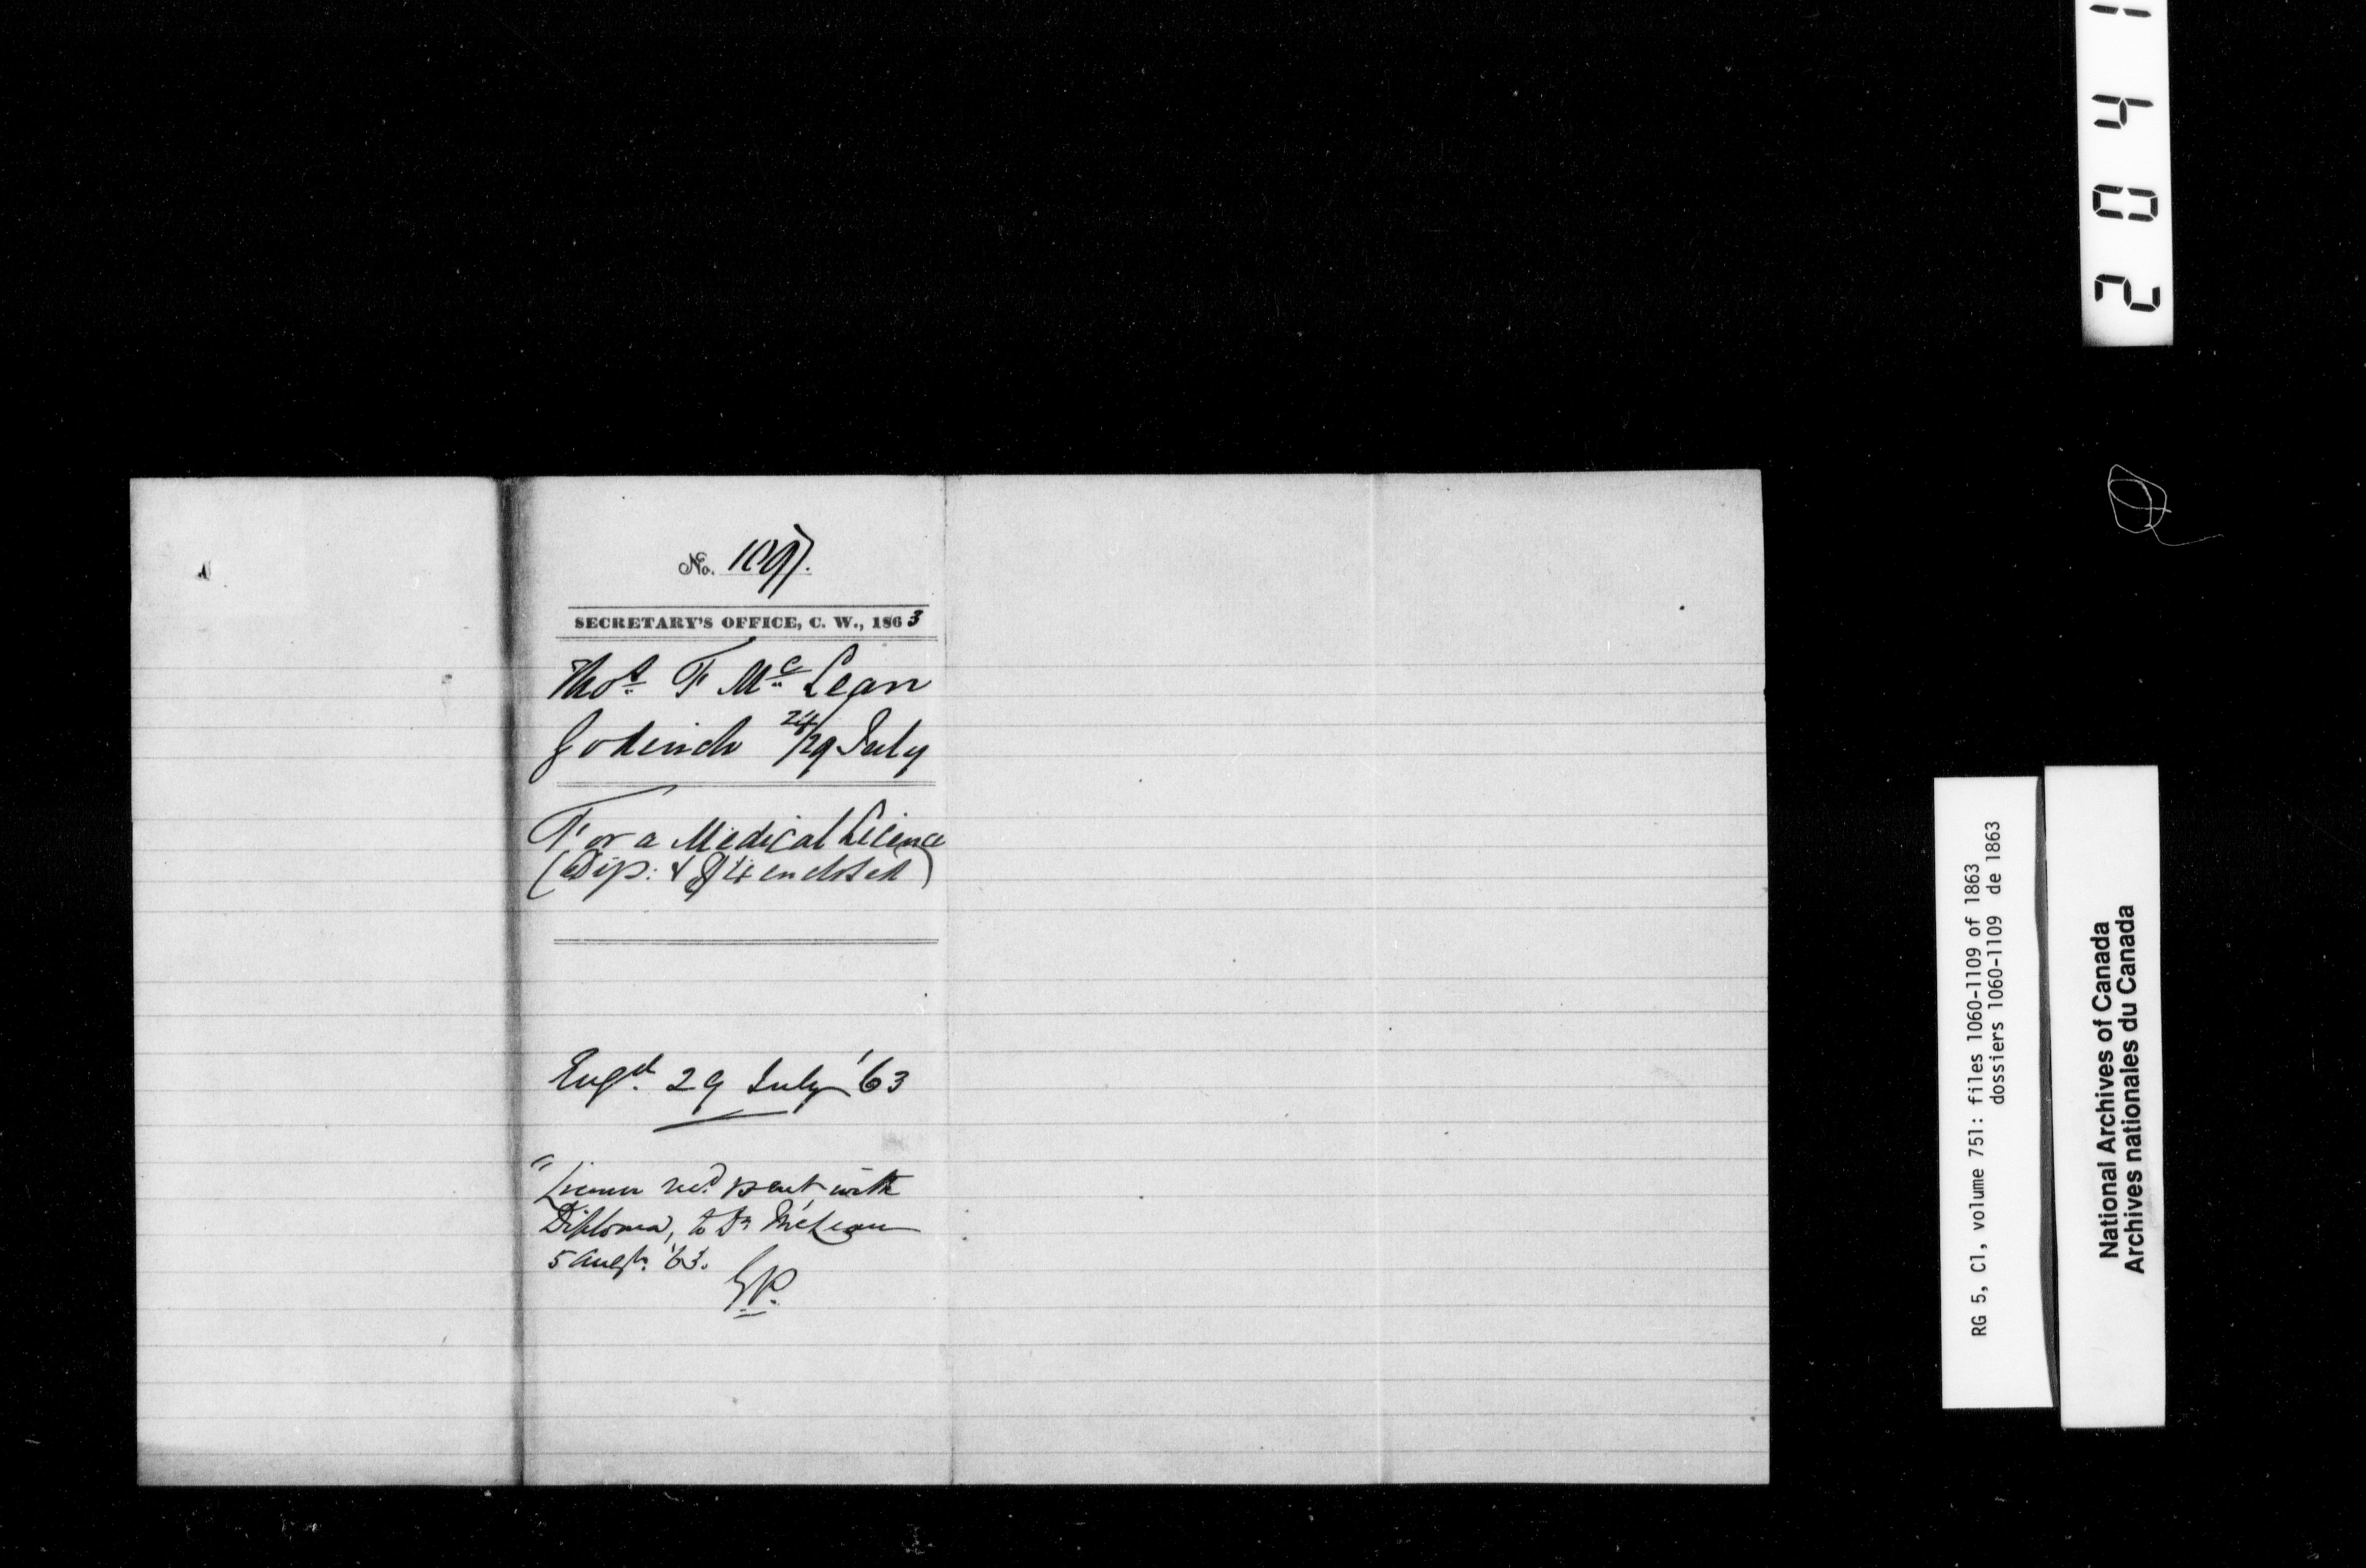 No. 1097.
SECRETARY'S OFFICE, C. W., 1863
Thos. F. McLean
Goderich 24/29 July
For a Medical Licence
(Dip: & $4 enclosed)
Engd. 29 July '63
"License recd. & sent with
Diploma, to Dr. McLean
5 Augt. '63.
G.P.
2041
RG 5, C1, volume 751: files 1060-1109 of 1863
dossiers 1060-1109 de 1863
National Archives of Canada
Archives nationales du Canada